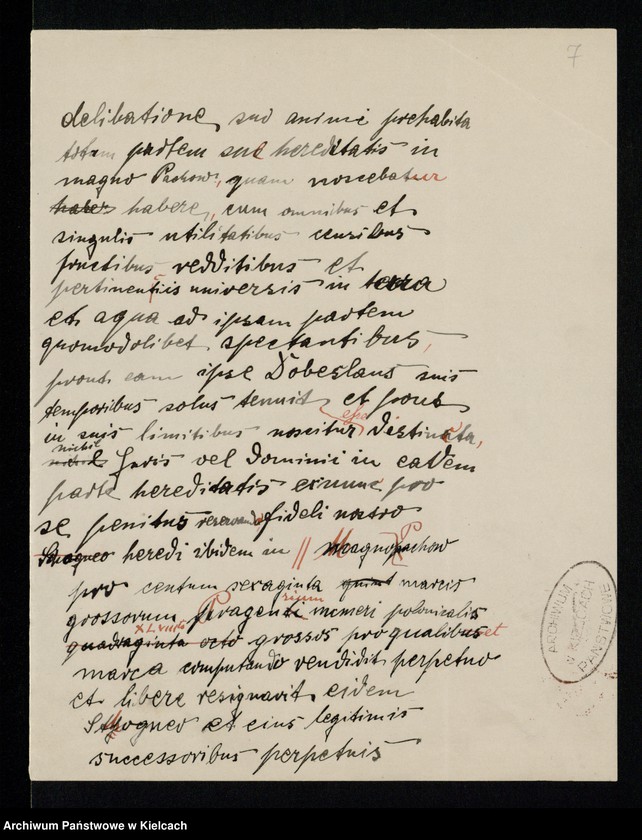 7
delibatione sui animi prehabita
totam partem sue hereditatis in
magno Pachow, quam noscebatur
haber habere, cum omnibus et
singulis utilitatibus censibus
fructibus redditibus et
pertinentiis universis in terra
et aqua ad ipsam partem
quomodolibet spectantibus,
prout eam ipse Dobeslaus suis
temporibus solus tenuit et prout
in suis limitibus noscitur esse distincta,
nichil Juris vel Dominii in eadem
parte hereditatis exnunc pro
se penitus reservando fideli nostro
heredi ibidem in magno Pachow
pro centum sexaginta marcis
grossorum pragensium numeri polonicalis
quadraginta octo XLVIII grossos pro qualibet
marca computando vendidit perpetuo
et libere resignavit eidem
Stogneo et eius legitimis
successoribus perpetuis
ARCHIWUM PAŃSTWOWE
W KIELCACH
Archiwum Państwowe w Kielcach